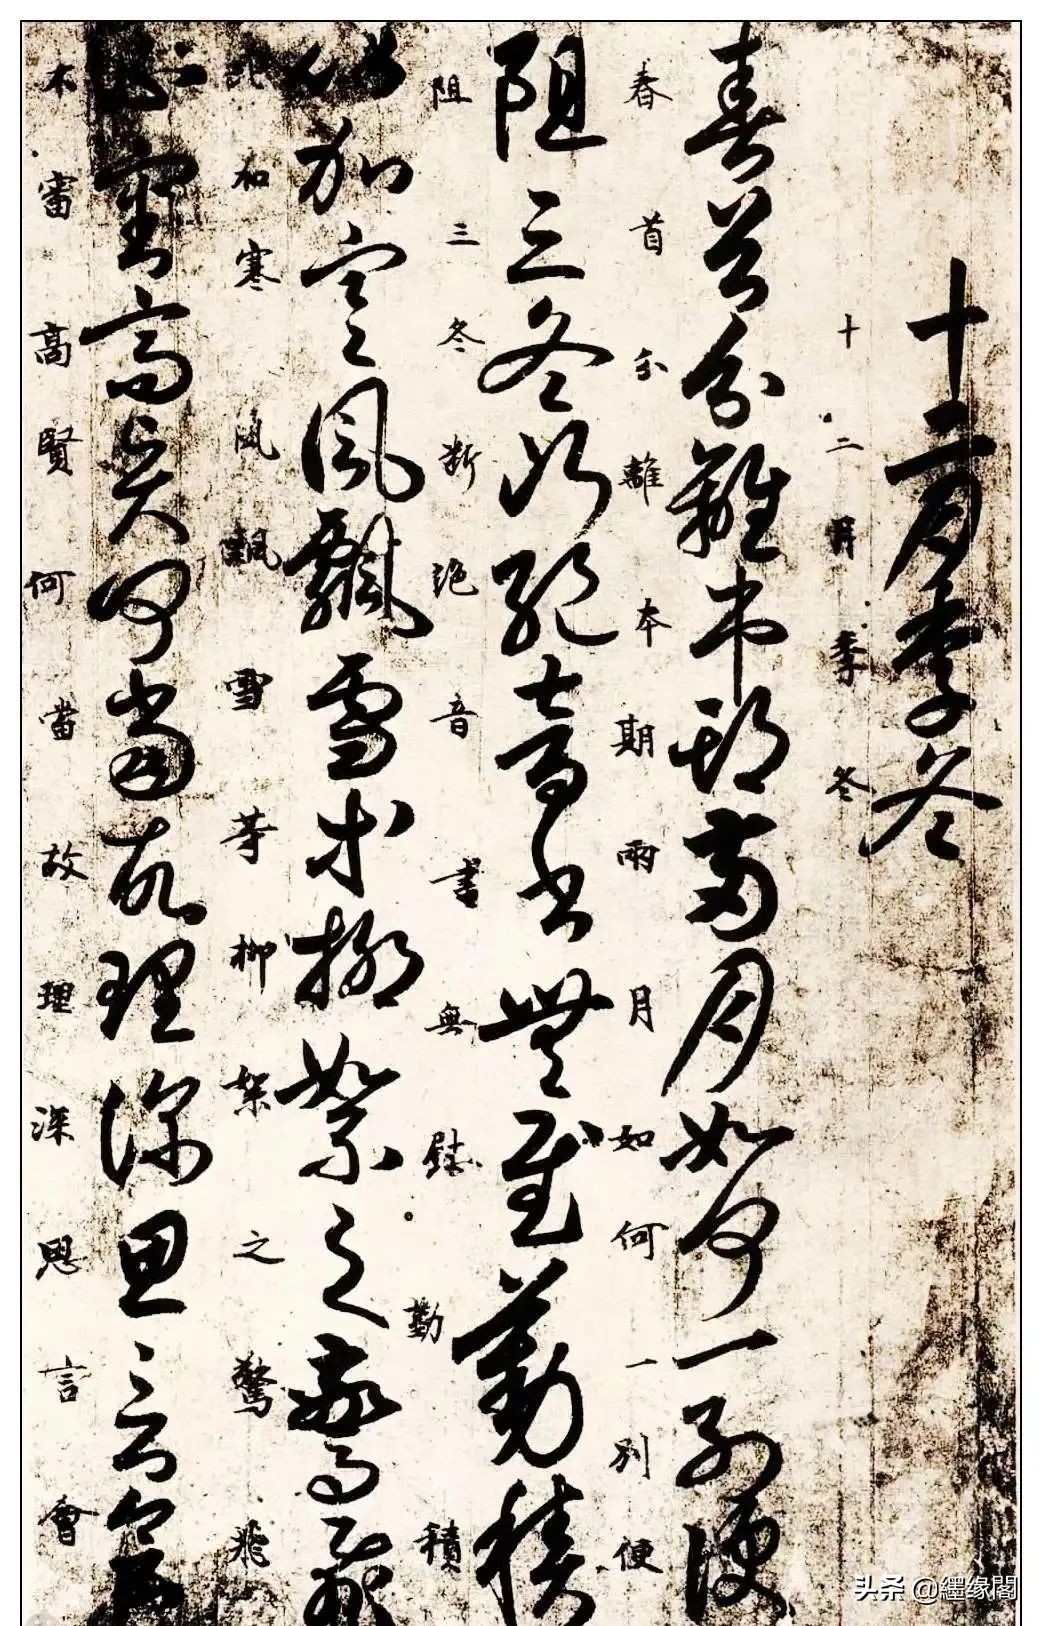 十二月季冬
十二月季冬
春首分離本期兩月如何一別便
春首分離本期兩月如何一別便
阻三冬斷絕音書無慰勤積
阻三冬斷絕音書無慰勤積
比加寒風飄雪等柳絮之驚飛
比加寒風飄雪等柳絮之驚飛
不審高賢何當故理深思言會
不審高賢何當故理深思言會
头条 @繼缘閣